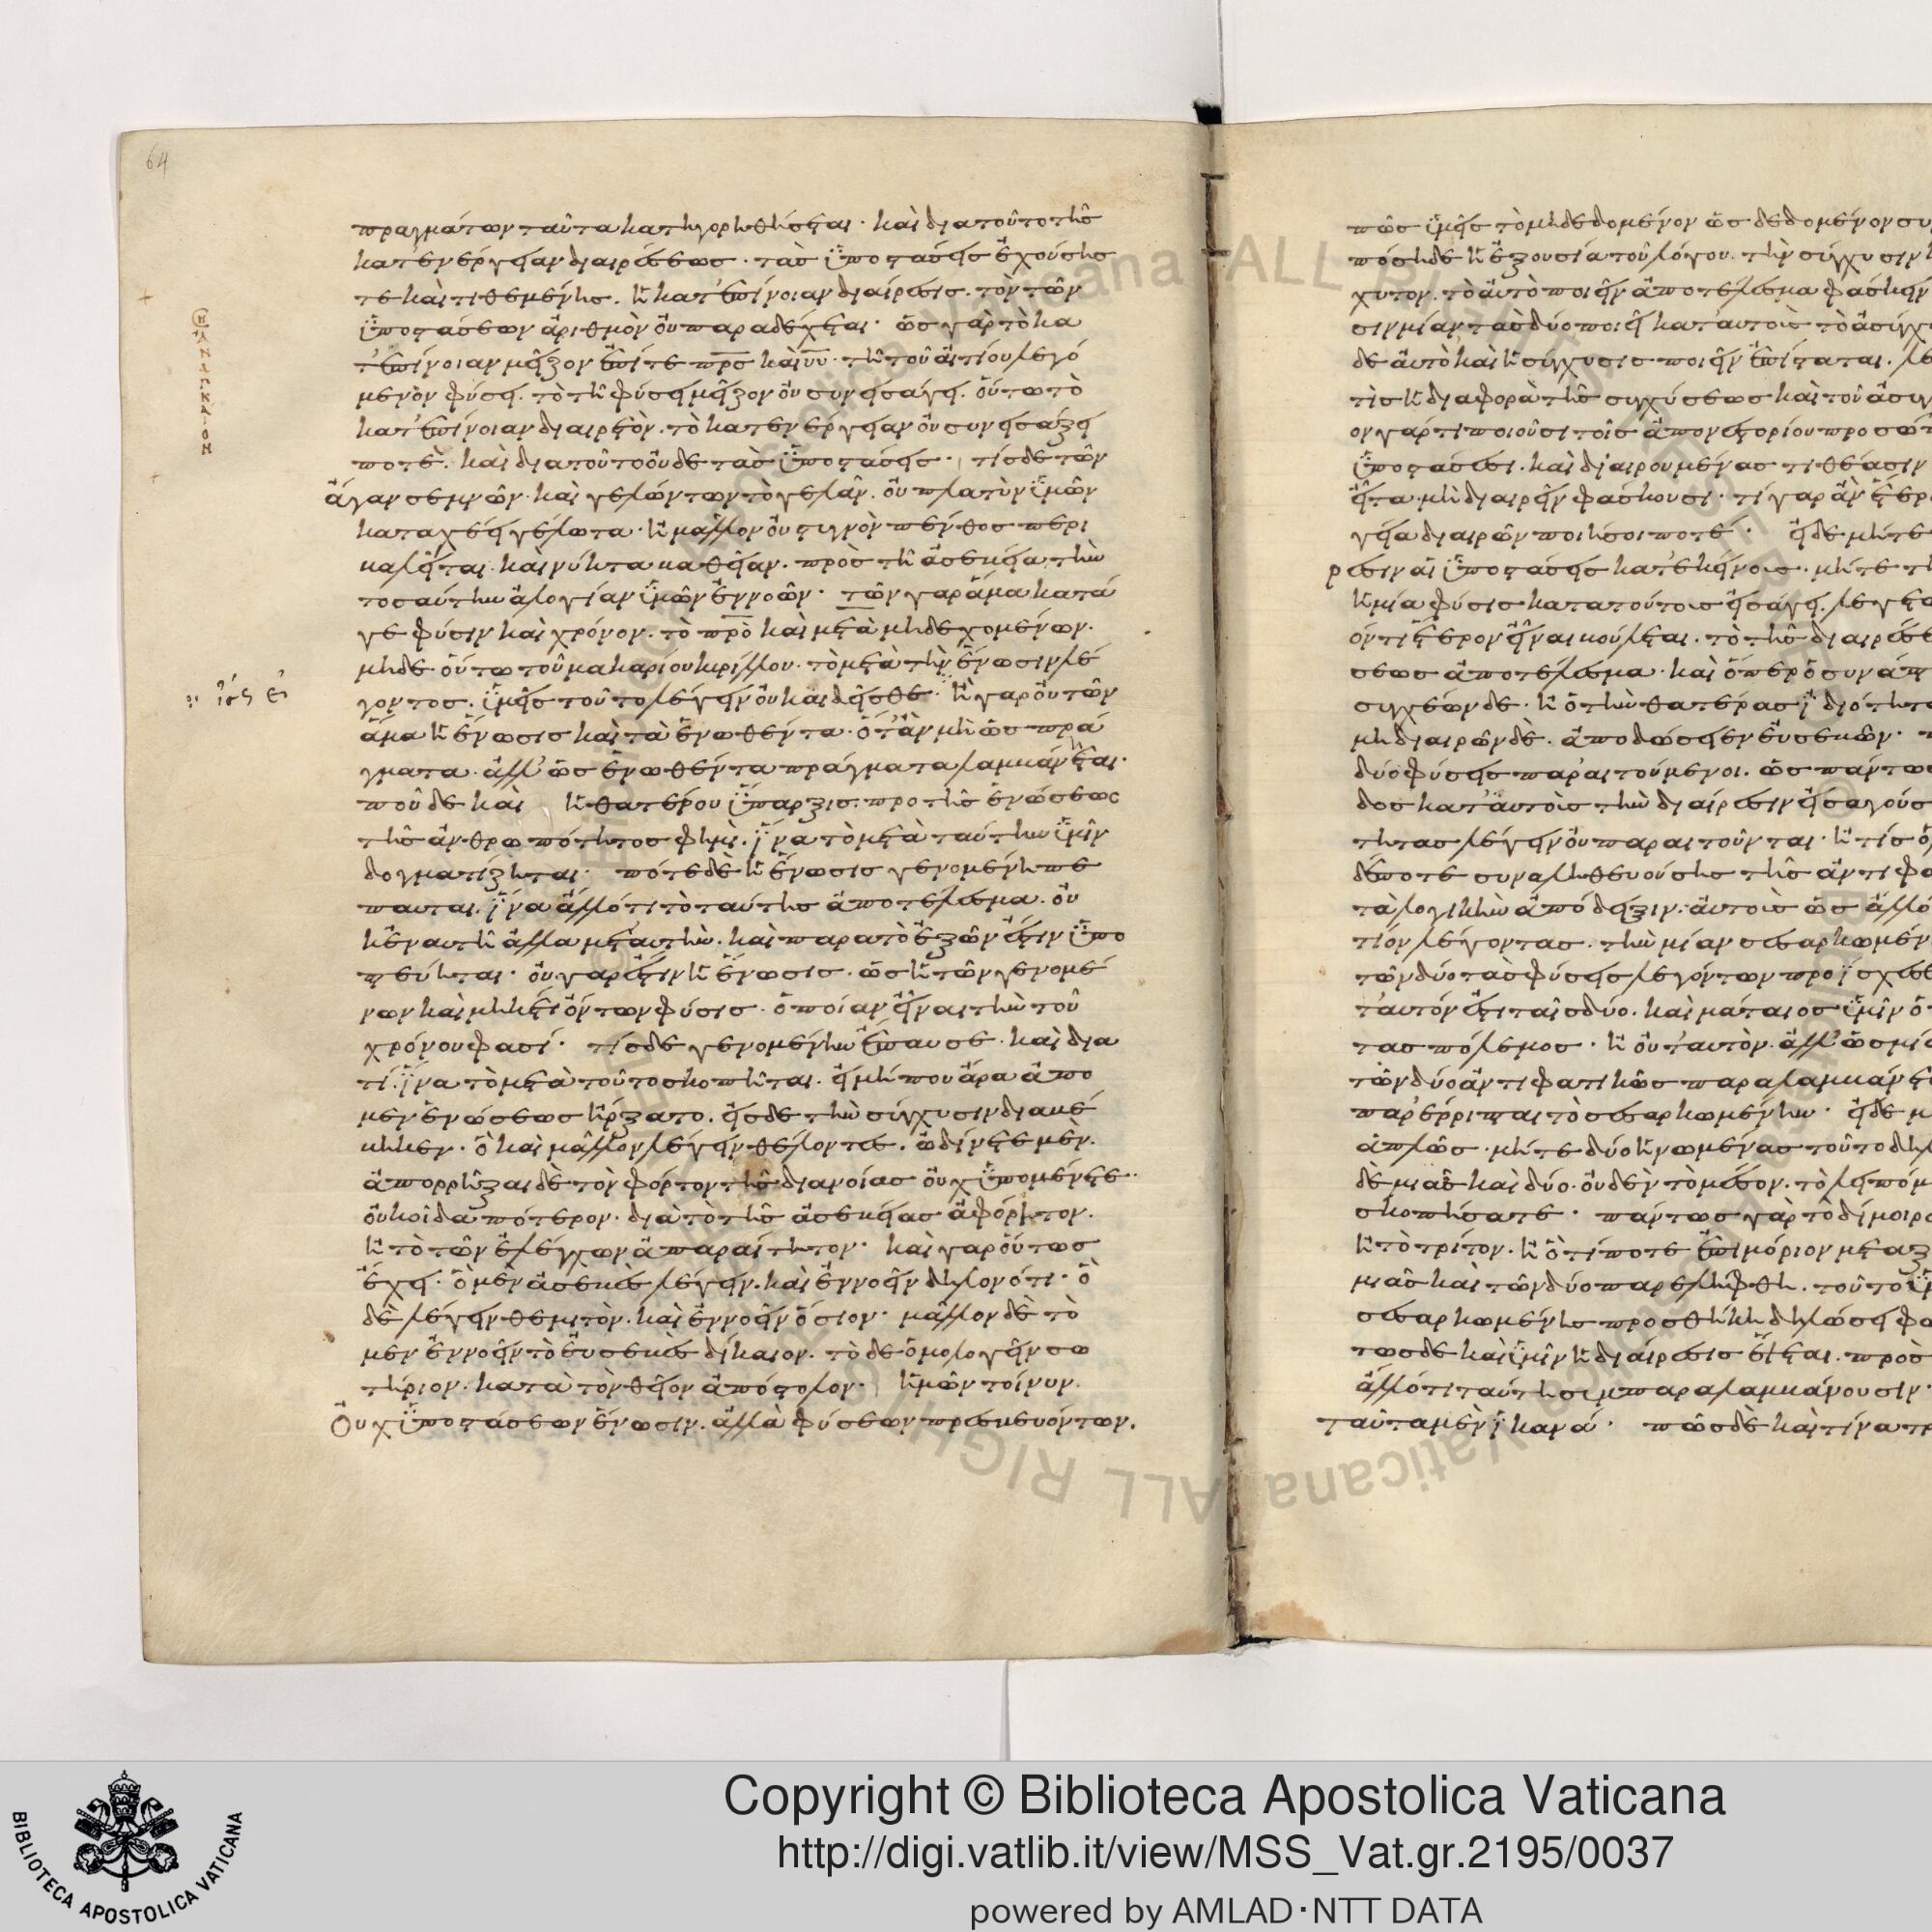 64
πραγμάτων ταῦτα κατηγορηθήσεται· καὶ διατοῦτο τῆς
κατενέργειαν διαιρέσεως· τὰς ὑποστάσεις ἐχούσης
τε καὶ τιθεμένης. ἡ κατ' ἐπίνοιαν διαίρεσις. τὸν τῶν
ὑποστάσεων ἀριθμὸν οὐ παραδέχεται· ὡς γὰρ τὸ κα
τ' ἐπίνοιαν μεῖζον ἐπί τε πρς καὶ υυ· τῆ τοῦ αἰτίου λεγό
μενον φύσει. τὸ τῆ φύσει μεῖζον οὐ συνεισάγει. οὕτω τὸ
κατ' ἐπίνοιαν διαιρετὸν. τὸ κατενέργειαν οὐ συνεισάξει
ποτὲ. καὶ διατοῦτο οὐδὲ τὰς ὑποστάσεις· τίς δὲ τῶν
ἄγαν σεμνῶν· καὶ γελώντων τὸ γελᾶν. οὐ πλατὺν ὑμῶν
καταχέει γέλωτα· ἢ μᾶλλον οὐ στυγνὸν πένθος περι
βαλεῖται· καὶ νύκτα βαθεῖαν. πρὸς τῆ ἀσεβεία, τὴν
τοσαύτην ἀλογίαν ὑμῶν ἐννοῶν· τῶν γὰρ ἅμα κατά
γε φύσιν καὶ χρόνον. τὸ πρὸ καὶ μετὰ μὴ δεχομένων.
μηδὲ οὕτω τοῦ μακαρίου κυρίλλου. τὸ μετὰ τὴν ἕνωσιν λέ
γοντος. ὑμεῖς τοῦτο λέγειν οὐκ αἰδεῖσθε· ἢ γὰρ οὐ τῶν
ἅμα ἡ ἕνωσις καὶ τὰ ἑνωθέντα· ὅτ' ἂν μὴ ὡς πρά
γματα· ἀλλ' ὡς ἑνωθέντα πράγματα λαμβάνηται·
ποῦ δὲ καὶ ἡ θατέρου ὕπαρξις. προ τῆς ἑνώσεως
τῆς ἀνθρωπότητος φημὶ. ἵνα τὸ μετὰ ταύτην ὑμῖν
δογματίζηται· πότε δὲ ἡ ἕνωσις γενομένη πέ
παυται. ἵνα ἄλλό τι τὸ ταύτης ἀποτέλεσμα. οὐ
κἐν αυτῆ ἀλλα μετ' αυτὴν. καὶ παρα τὸ ἐξ ὧν ἐστιν ὑπο
πτεύηται· οὐ γαρ ἐστιν ἡ ἕνωσις. ὡς ἡ τῶν γενομέ
νων καὶ μηκέτι ὄντων φύσις· ὁποίαν εἶναι τὴν τοῦ
χρόνου φασί· τίς δὲ γενομένην ἔπαυσε. καὶ δια
τί. ἵνα τὸ μετὰ τοῦτο σκοπῆται. εἰ μή που ἄρα ἀπο
μεν ἑνώσεως ἤρξατο. εἰς δὲ τὴν σύγχυσιν διαμέ
βηκεν. ὃ καὶ μᾶλλον λέγειν θέλοντες. ὠδίνετε μὲν.
ἀπορρῆξαι δὲ τὸν φόρτον τῆς διανοίας οὐχ ὑπομένετε·
οὐκ οἶδα πότερον· διὰ τὸ τῆς ἀσεβείας ἀφόρητον.
ἢ τὸ τῶν ἐλέγχων ἀπαραίτητον· καὶ γαρ οὕτως
ἔχει· ὃ μὲν ἀσεβὲς λέγειν. καὶ ἐννοεῖν δῆλον ὅτι· ὃ
δὲ λέγειν θεμιτὸν. καὶ ἐννοεῖν ὅσιον· μᾶλλον δὲ τὸ
μεν ἐννοεῖν τὸ εὐσεβὲς δίκαιον. τὸ δὲ ὁμολογεῖν σω
τήριον. κατὰ τὸν θεῖον ἀπόστολον· ἡμῶν τοίνυν.
Οὐχ ὑποστάσεων ἕνωσιν. ἀλλὰ φύσεων πρεσβευόντων.
ΑΝΑΓΚΑΙΟΝ
πῶς ὑμεῖς τὸ μὴ δεδομένον ὡς δεδομένον
πόση δὲ ἡ ἐξουσία τοῦ λόγου. τὴν σύγχυσιν
χυτον. τὸ αὐτὸ ποιεῖν ἀποτέλεσμα φάσκειν
σιν μίαν τὰς δύο ποιεῖ κατ' αυτοὺς τὸ
δε αὐτὸ καὶ ἡ σύγχυσις ποιεῖν ἐπίσταται.
τίς ἡ διαφορὰ τῆς συγχύσεως καὶ τοῦ
ον γάρ τι ποιοῦσι τοῖς ἀπο νεστορίου
ὑποστάσεσι. καὶ διαιρουμένας τιθέασιν
εἶτα. μὴ διαιρεῖν φάσκουσι· τί γαρ ἂν
γεία διαιρῶν ποιήσοι ποτέ· εἰ δὲ μήτε
ρεσιν αἱ ὑποστάσεις κατ' ἐκείνους. μήτε
ἡ μία φύσις κατα τούτους εἰσάγει.
όν τι ἕτερον εἶναι βούλεται. τὸ τῆς
σεως ἀποτέλεσμα· καὶ ὅπερ ὁ
συγχέων δὲ. ἢ ὁ τὴν θατέρας ἰδιότητα
μὴ διαιρῶν δὲ. ἀποδώσειεν εὐσεβῶν·
δύο φύσεις παραιτούμενοι. ὡς πάντως
δος κατ' αὐτοὺς τὴν διαίρεσιν
τητας λέγειν οὐ παραιτοῦνται· ἢ τίς
δέποτε συναληθευούσης τῆς
τὰ λογικὴν ἀπόδειξιν. αὐτοὺς ὡς
τιόν λέγοντας. τὴν μίαν
τῶν δύο τὰς φύσεις λεγόντων
ταυτόν ἐστι ταῖς δύο. καὶ μάταιος ὑμῖν
τας πόλεμος· ἢ οὐ ταυτὸν. ἀλλ'
τῶν δύο ἀντιφατικῶς
παρέρριπται τὸ σεσαρκωμένην· εἰ δὲ
ἁπλῶς. μήτε δύο ἡνωμένας
δὲ μιᾶς καὶ δύο. οὐδὲν τὸ μέσον.
σκοπήσατε· πάντως γὰρ τὸ
ἢ τὸ τρίτον. ἢ ὅ τί ποτε ἐπιμόριον
μιᾶς καὶ τῶν δύο παρελήφθη. τοῦτο
σεσαρκωμένης προσθήκη δηλώσει
τως δὲ καὶ ὑμῖν ἡ διαίρεσις ἔσεται.
ἄλλό τι ταύτης συμπαραλαμβάνουσιν·
ταῦτα μὲν ἱκανά· πῶς δὲ καὶ τίνα
BIBLIOTECA APOSTOLICA VATICANA
Copyright © Biblioteca Apostolica Vaticana
http://digi.vatlib.it/view/MSS_Vat.gr.2195/0037
powered by AMLAD·NTT DATA